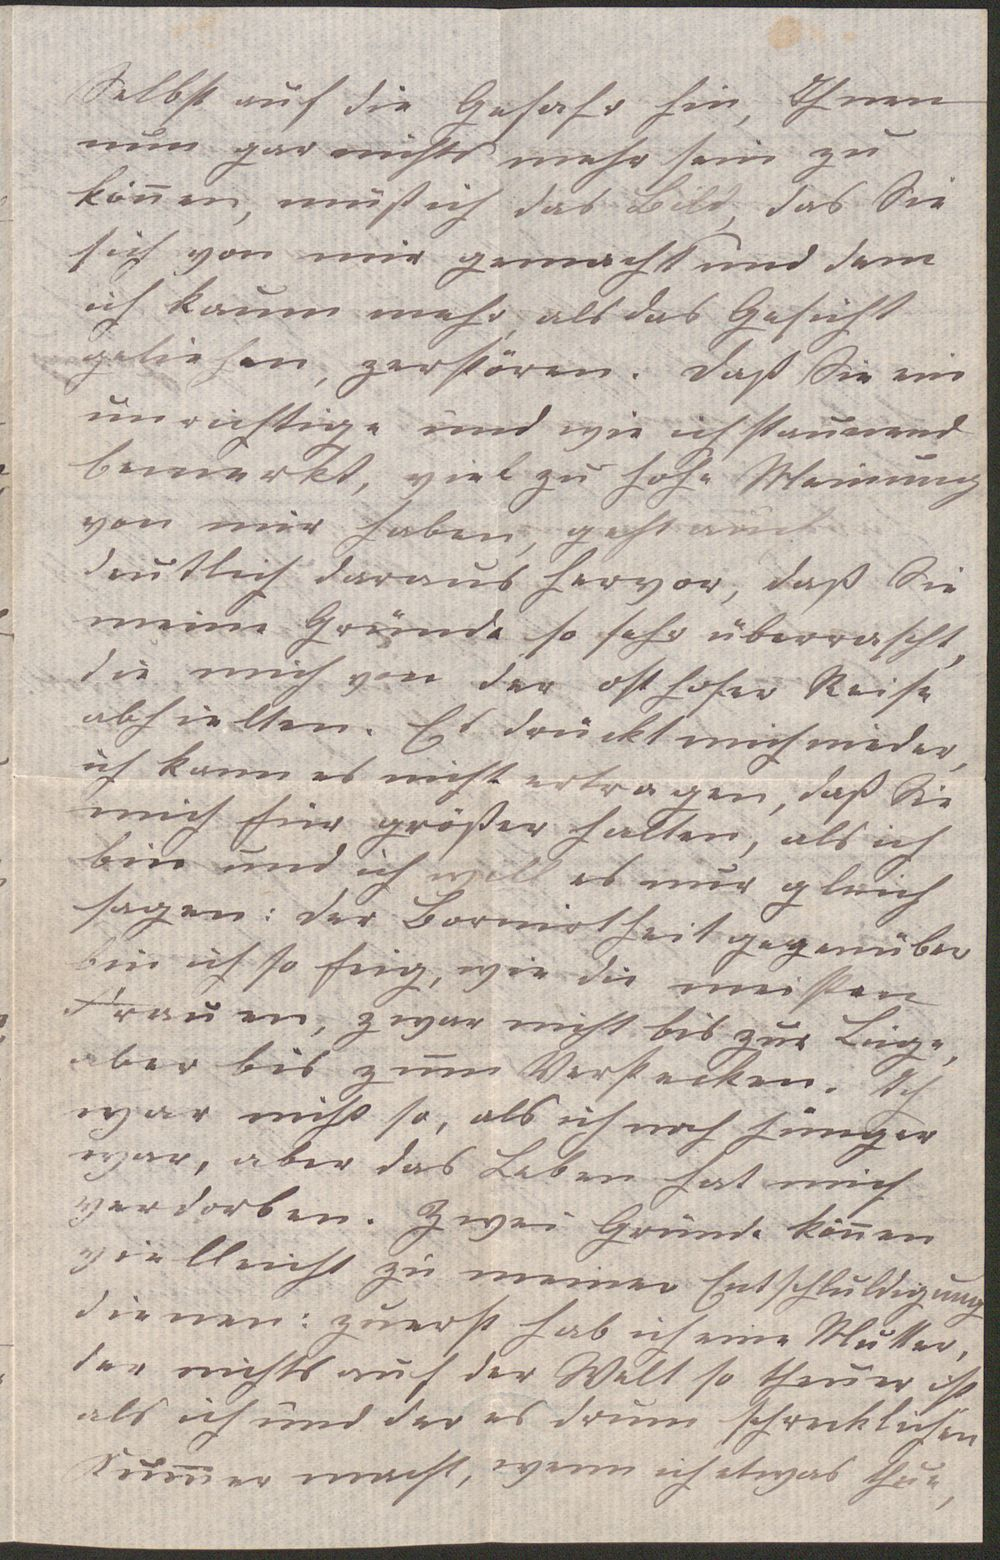 Selbst auf die Gefahr hin, Ihnen
nun gar nichts mehr sein zu
kön̄en, muß ich das Bild, das Sie
sich von mir gemacht und dem
ich kaum mehr, als das Gesicht
geliehen, zerstören. Daß Sie ein
unrichtige und wie ich staunend
bemerkt, viel zu hohe Meinung
von mir haben, geht
deutlich daraus hervor, daß Sie
meine Gründe so sehr überrascht,
die mich von der osthofer Reise
abhielten. Es drückt mich nieder,
ich kann es nicht ertragen, daß Sie
mich für größer halten, als ich
bin und ich will es nur gleich
sagen: der Bornirtheit gegenüber
bin ich so feig, wie die meisten
Frauen, zwar nicht bis zur Lüge,
aber bis zum Verstecken. Ich
war nicht so, als ich noch jünger
war, aber das Leben hat mich
verdorben. Zwei Gründe kön̄en
vielleicht zu meiner Entschluldigung
dienen: zuerst hab ich eine Mutter,
der nichts auf der Welt so theuer ist
als ich und der es drum schrecklichen
Kum̄er macht, wenn ich etwas thue,